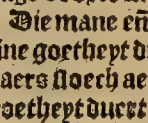 Die mane en̄
ine goetheyt d
aers noech ae
oetheyt duert